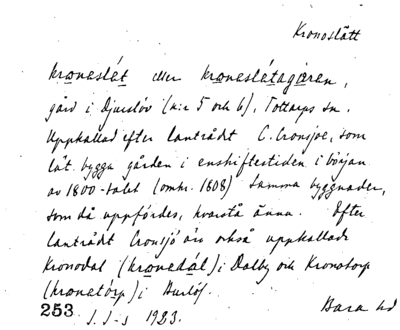 Kronoslätt
kroneslét eller kroneslétagåren,
gård i Djurslöv (n:r 5 och 6), Tottarps sn.
Uppkallad efter lantrådt C. Cronsjoe, som
lät bygga gården i enskiftestiden i början
av 1800-talet (omkr. 1808) Samma byggnader,
som då uppfördes, kvarstå ännu. Efter
lantrådt Cronsjö äro också uppkallade
Kronodal (kronedál) i Dalby och Kronotorp
(kronetórp) i Burlöf.
253 J. I-s 1923. Bara hd